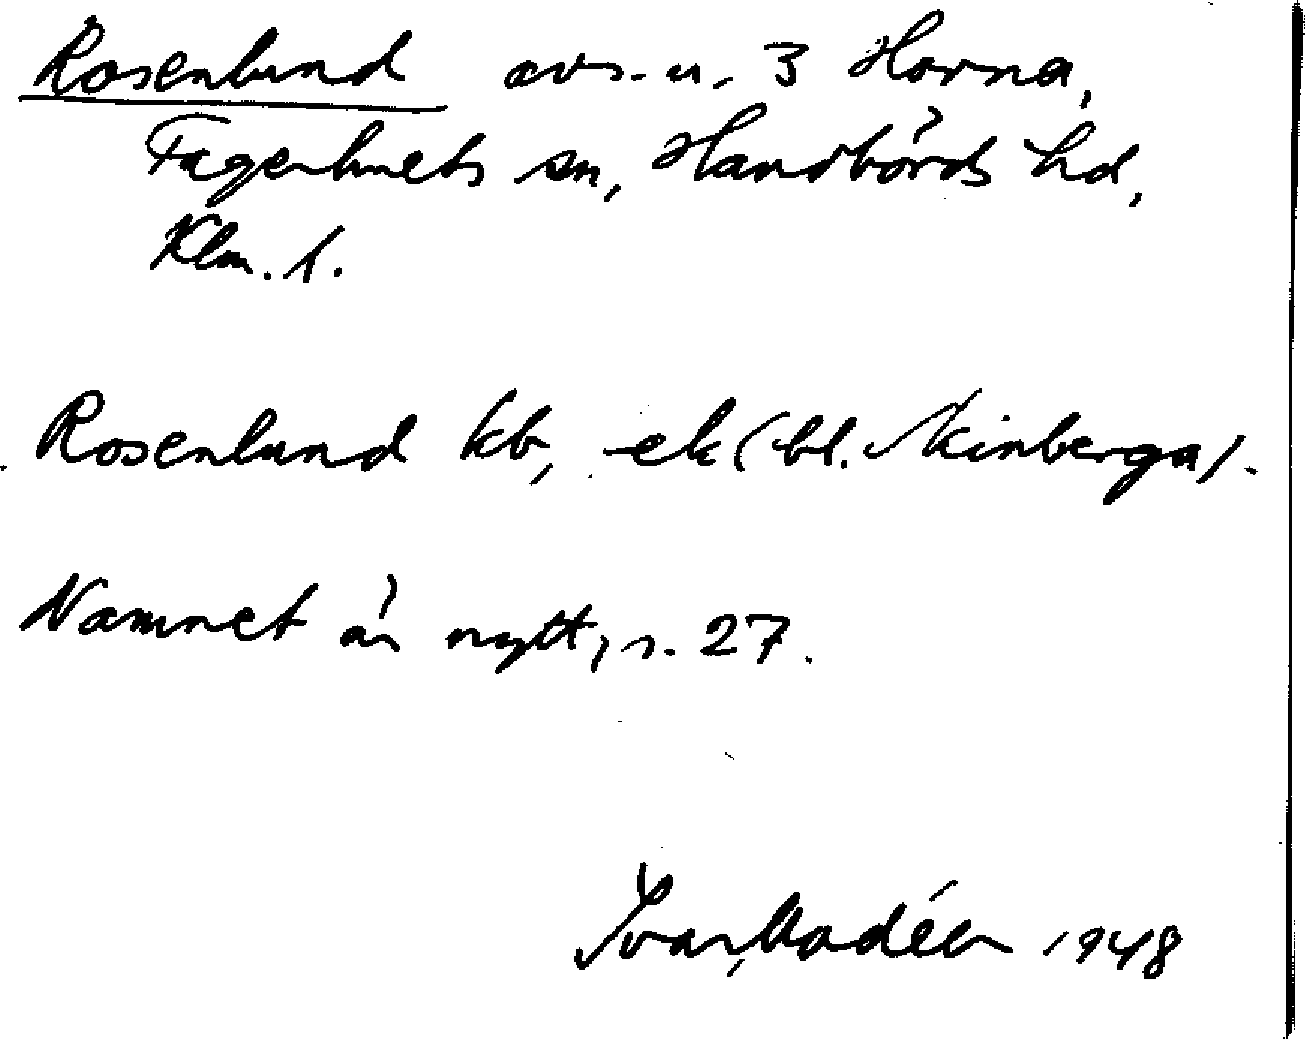 Rosenlund avs. u. 3 Horna,
Fagerhults sn, Handbörds hd,
Klm. l.
Rosenlund kb, ek (bl. Kinberga).
Namnet är nytt, s. 27.
Ivar Modéer 1948